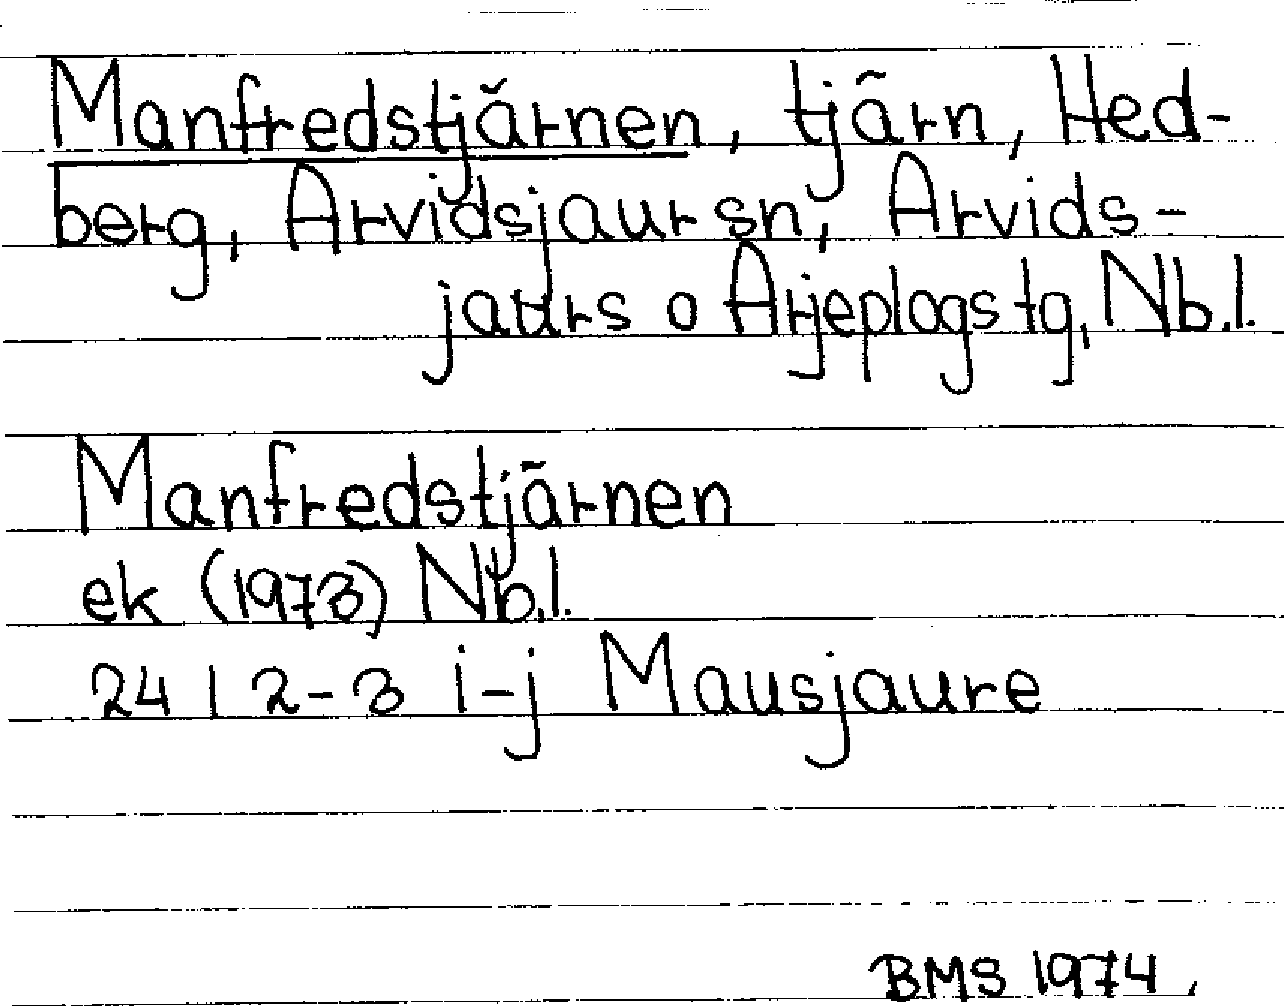 Manfredstjärnen, tjärn, Hed-
berg, Arvidsjaur sn, Arvids-
jaurs o Arjeplogs tg, Nb.l.
Manfredstjärnen
ek (1973) Nb.l.
24 I 2-3 i-j Mausjaure
BMS 1974.